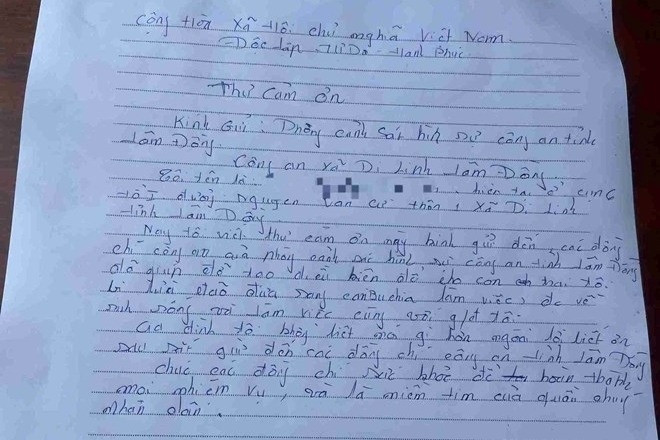 Cộng Hòa Xã Hội chủ nghĩa Việt Nam
Độc lập Tự Do Hạnh Phúc
Thư Cảm ơn
Kính Gửi : Phòng cảnh sát hình sự công an tỉnh
Lâm Đồng.
Công an xã Di Linh Lâm Đồng.
Tôi tên là
hiện tại ở
tổ 1 đường Nguyen Văn cừ thôn 1 Xã Di Linh
tỉnh Lâm Đồng
Nay tô viết thư cảm ơn này kính gửi đến các đồng
chí công an và phòng cảnh sát hình sự công an tỉnh Lâm Đồng
đã giúp đỡ tạo điều kiện để cho con trai tôi.
bị lừa đảo đưa sang camBuchia làm việc, về
sinh sống với làm việc cùng với gđ tôi.
Gia đình tôi không biết nói gì hơn ngoài lời biết ơn
sâu sắc gửi đến các đồng chí công an tỉnh Lâm Đồng
chúc các đồng chí sức khỏe để hoàn thành
mọi nhiệm vụ, và là niềm tin của quần chúng
nhân dân.